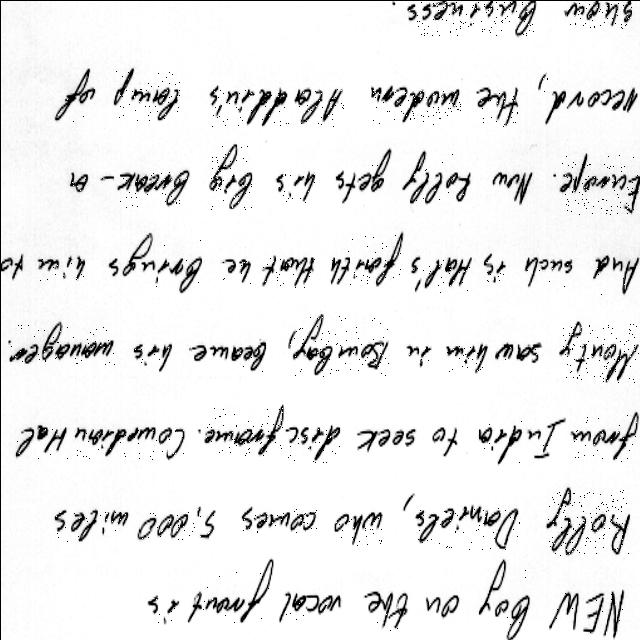 NEW boy on the vocal front is
Rolly Daniels, who comes 5,000 miles
from India to seek disc fame. Comedian Hal
Monty saw him in Bombay, became his manager.
And such is Hal's faith that he brings him to
Europe. Now Rolly gets his big break - a
record, the modern Aladdin's lamp of
show business.